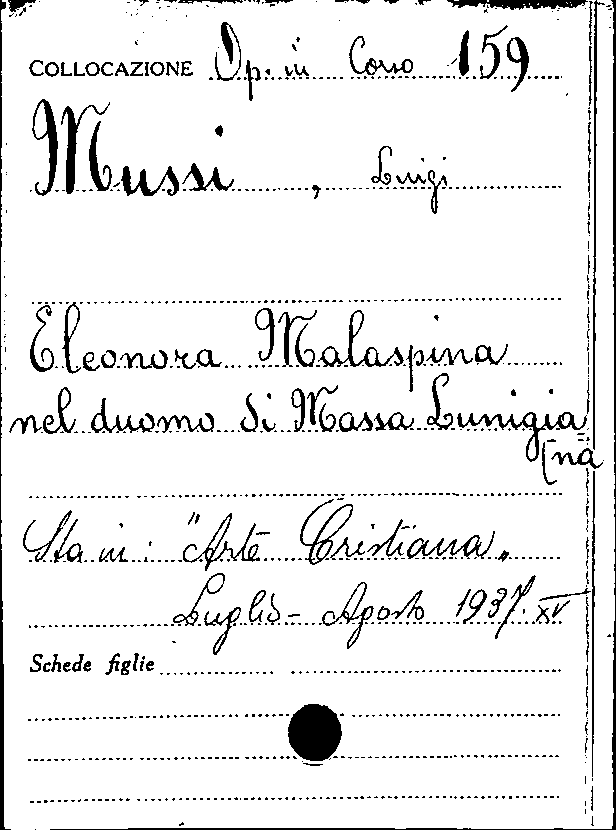 COLLOCAZIONE Op. in Corso 159
Mussi, Luigi
Eleonora Malaspina
nel duomo di Massa Lunigia=
[na
Sta in: "Arte Cristiana„
Luglio - Agosto 1937. XV
Schede figlie